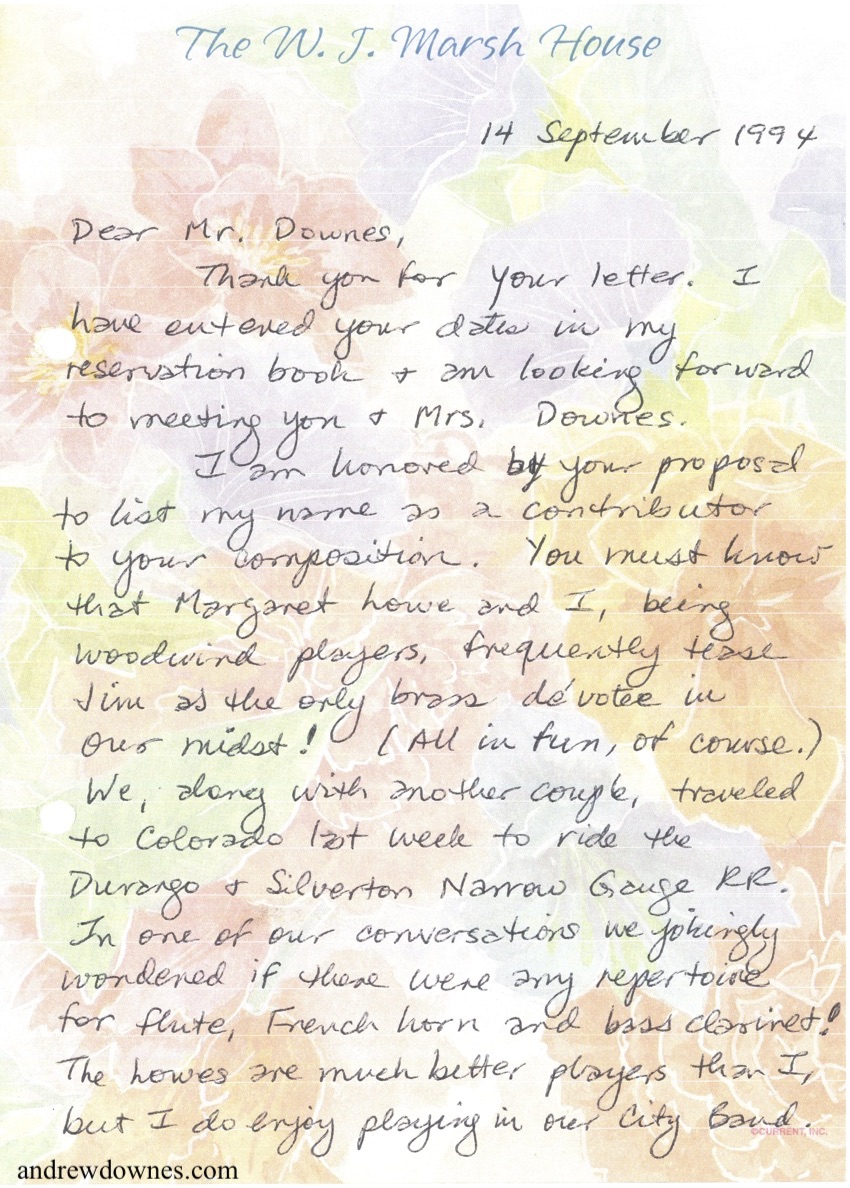 The W. J. Marsh House
14 September 1994
Dear Mr. Downes,
Thank you for your letter. I
have entered your dates in my
reservation book & am looking forward
to meeting you & Mrs. Downes.
I am honored by your proposal
to list my name as a contributor
to your composition. You must know
that Margaret Howe and I, being
woodwind players, frequently tease
Jim as the only brass dévotee in
our midst! (All in fun, of course.)
We, along with another couple, traveled
to Colorado last week to ride the
Durango & Silverton Narrow Gauge RR.
In one of our conversations we jokingly
wondered if there were any repertoire
for flute, French horn and bass clarinet!
The Howes are much better players than I,
but I do enjoy playing in our City Band.
©CURRENT, INC.
andrewdownes.com